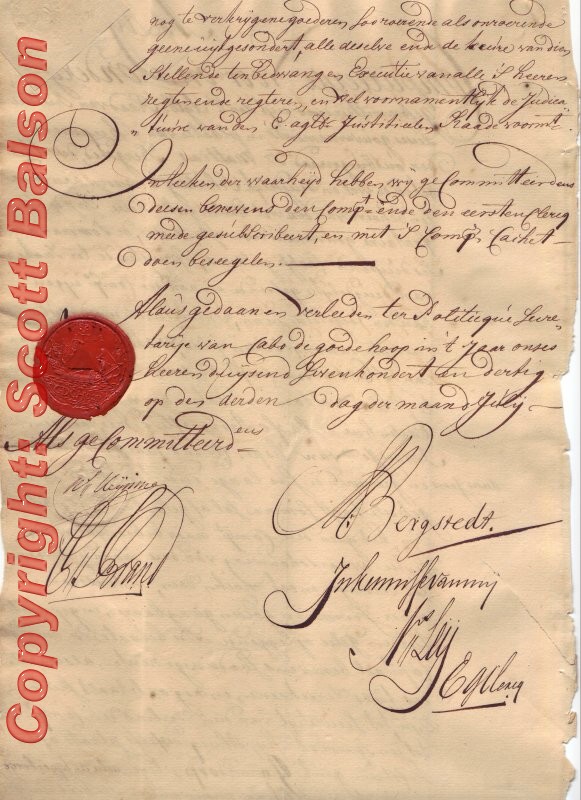 nog te verkrijgene goederen soo roerende als onroerende
geene uijtgesondert, alle deselve ende de keure van dien
Stellende ten bedwang en Executie van alle 's heeren
regten ende regteren, en wel voornamentlijk de Judica„
„ture van den E agtb: Justitieelen Raade voorm:t
In teeken der waarheijd hebben wij geCommitteerdens
deesen benevens den Comp:t ende den eersten Clercq
mede gesubscribeert, en met 's Comp:s Cachet
doen beseegelen.
Aldus gedaan en verleeden ter Politicque Secre-
tarije van Cabo de goede hoop in 't Jaar onses
heeren duijsend Sevenhonderd en dertig
op den derden dag der maand Julij
Als geCommitteerdens
Bergstedt.
In kennisse van mij
EgClercq
Copyright: Scott Balson